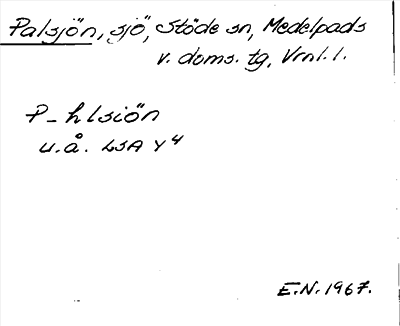 Palsjön, sjö, Stöde sn, Medelpads
v. doms. tg, Vrnl. l.
P-hlsiön
u.å. LSA Y4
E.N. 1967.